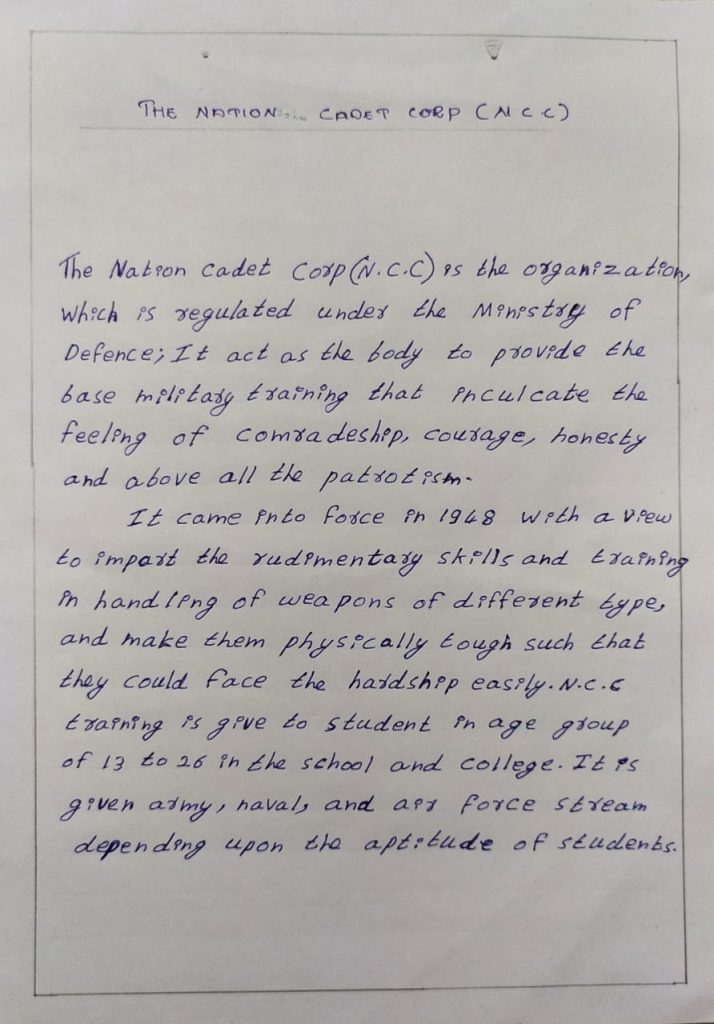 THE NATION CADET CORP (N C C)
The Nation cadet Corp (N.C.C) is the organization,
which is regulated under the Ministry of
Defence; It act as the body to provide the
base military training that inculcate the
feeling of comradeship, courage, honesty
and above all the patrotism.
It came into force in 1948 with a view
to impart the rudimentary skills and training
in handling of weapons of different type,
and make them physically tough such that
they could face the hardship easily. N.C.C
training is give to student in age group
of 13 to 26 in the school and college. It is
given army, naval, and air force stream
depending upon the aptitude of students.